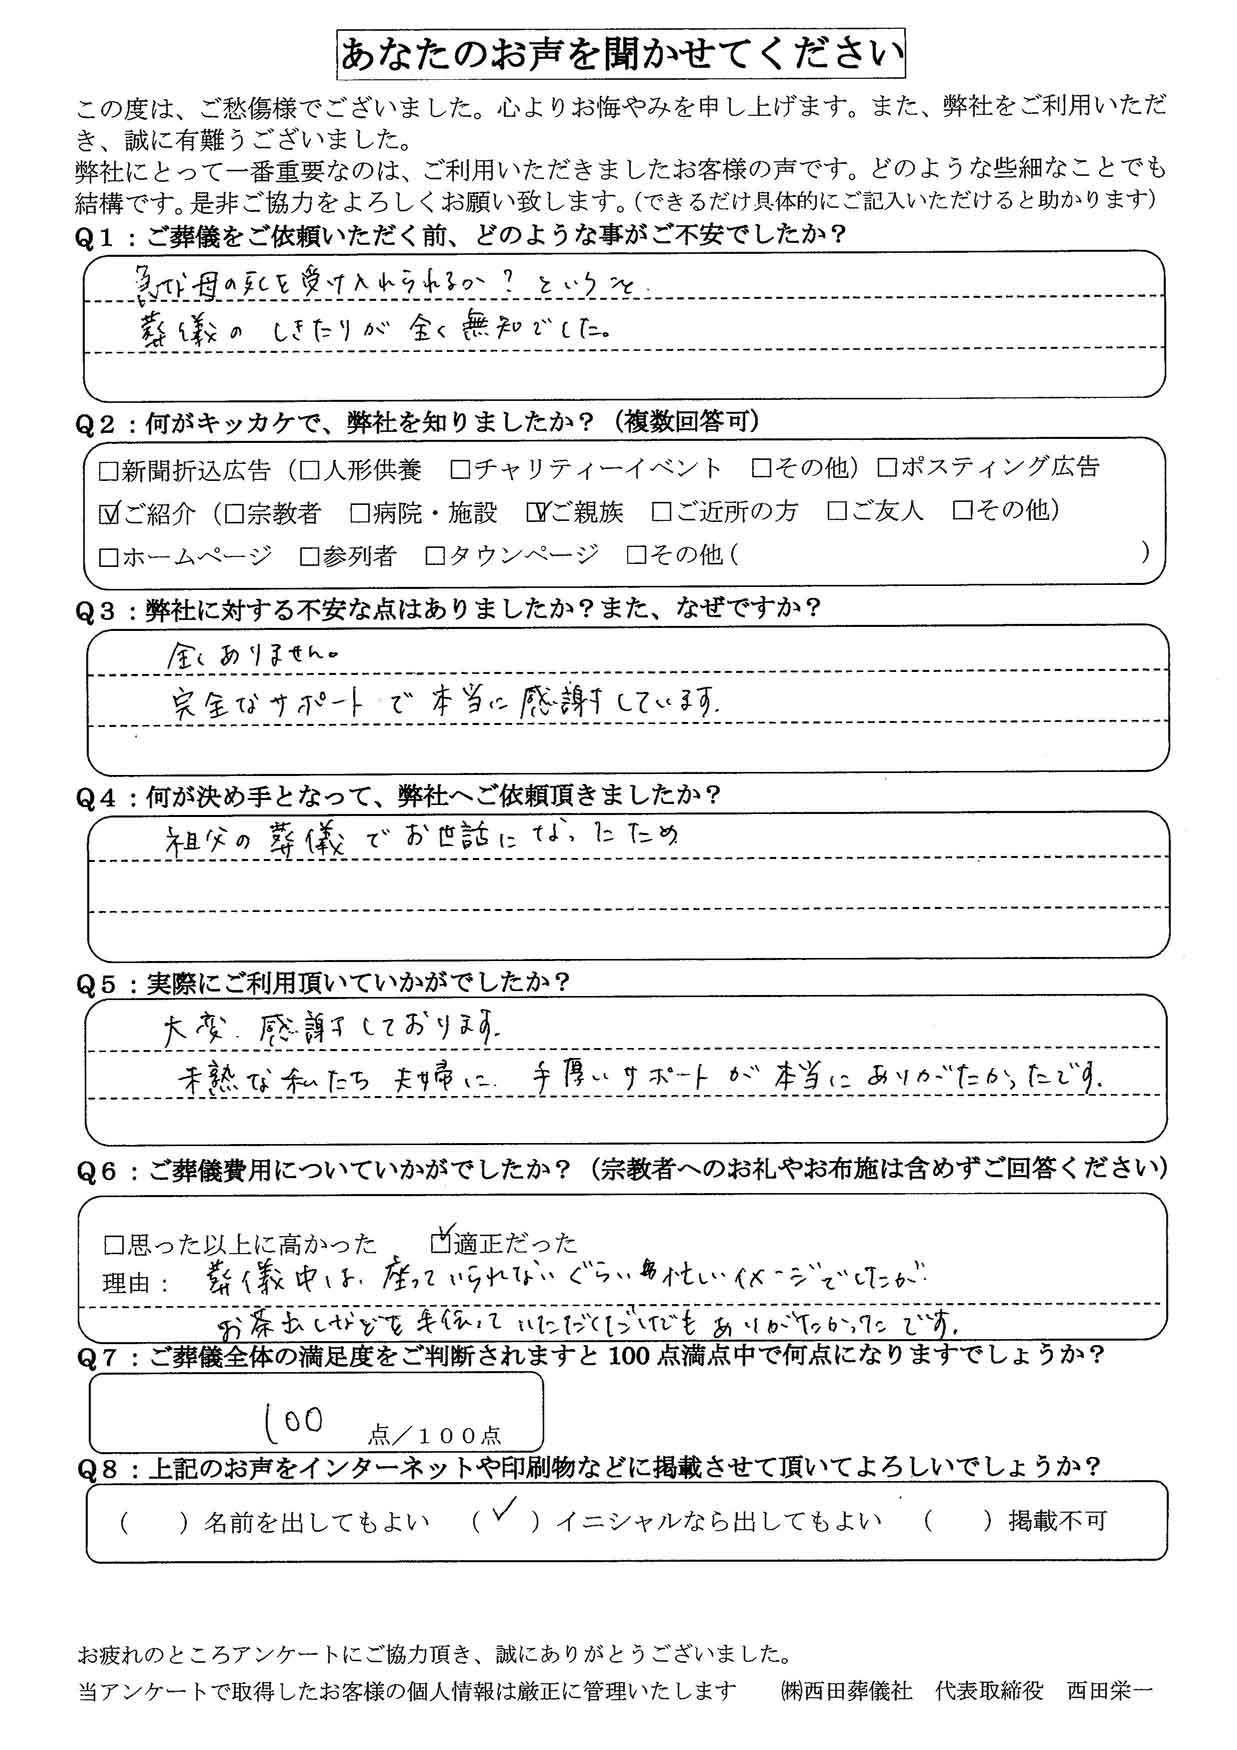 あなたのお声を聞かせてください
この度は、ご愁傷様でございました。心よりお悔やみを申し上げます。また、弊社をご利用いただ
き、誠に有難うございました。
弊社にとって一番重要なのは、ご利用いただきましたお客様の声です。どのような些細なことでも
結構です。是非ご協力をよろしくお願い致します。（できるだけ具体的にご記入いただけると助かります）
Q1：ご葬儀をご依頼いただく前、どのような事がご不安でしたか？
急な母の死を受け入れられるか？ということ
葬儀のしきたりが全く無知でした。
Q2：何がキッカケで、弊社を知りましたか？（複数回答可）
□新聞折込広告（□人形供養　□チャリティーイベント　□その他）□ポスティング広告
☑ご紹介（□宗教者　□病院・施設　☑ご親族　□ご近所の方　□ご友人　□その他）
□ホームページ　□参列者　□タウンページ　□その他（　　　　）
Q3：弊社に対する不安な点はありましたか？また、なぜですか？
全くありません。
完全なサポートで本当に感謝しています。
Q4：何が決め手となって、弊社へご依頼頂きましたか？
祖父の葬儀でお世話になったため
Q5：実際にご利用頂いていかがでしたか？
大変、感謝しております。
未熟な私たち夫婦に、手厚いサポートが本当にありがたかったです。
Q6：ご葬儀費用についていかがでしたか？（宗教者へのお礼やお布施は含めずご回答ください）
□思った以上に高かった　☑適正だった
理由：葬儀中は、座っていられないぐらい忙しいイメージでしたが、
お茶出しなどを手伝っていただくだけでもありがたかったです。
Q7：ご葬儀全体の満足度をご判断されますと100点満点中で何点になりますでしょうか？
100 点／１００点
Q8：上記のお声をインターネットや印刷物などに掲載させて頂いてよろしいでしょうか？
（　）名前を出してもよい　（✓）イニシャルなら出してもよい　（　）掲載不可
お疲れのところアンケートにご協力頂き、誠にありがとうございました。
当アンケートで取得したお客様の個人情報は厳正に管理いたします　㈱西田葬儀社　代表取締役　西田栄一